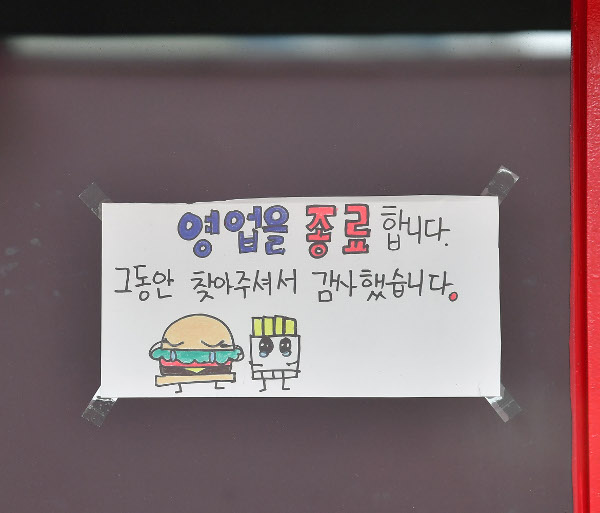 영업을 종료합니다.
그동안 찾아주셔서 감사했습니다.